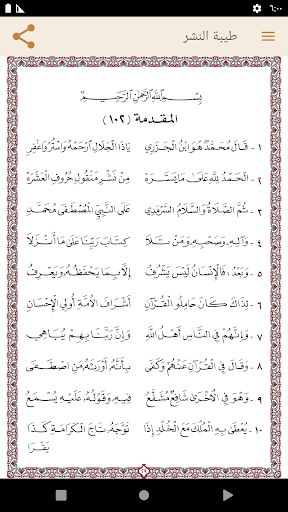 ٦:٠٠
طيبة النشر
بِسْمِ اللَّهِ الرَّحْمَٰنِ الرَّحِيمِ
المقدمة (١٠٢)
١ - قَالَ مُحَمَّدٌ هُوَ ابْنُ الْجَزَرِي يَاذَا الْجَلَالِ ارْحَمْهُ وَاسْتُرْ وَاغْفِرِ
٢ - الْحَمْدُ لِلَّهِ عَلَى مَا يَسَّرَهُ مِنْ نَشْرِ مَنْقُولِ حُرُوفِ الْعَشَرَهْ
٣ - ثُمَّ الصَّلَاةُ وَالسَّلَامُ السَّرْمَدِي عَلَى النَّبِيِّ الْمُصْطَفَى مُحَمَّدِ
٤ - وَآلِهِ وَصَحْبِهِ وَمَنْ تَلَا كِتَابَ رَبِّنَا عَلَى مَا أَنْزَلَا
٥ - وَبَعْدُ، فَالْإِنْسَانُ لَيْسَ يَشْرُفُ إِلَّا بِمَا يَحْفَظُهُ وَيَعْرِفُ
٦ - لِذَاكَ كَانَ حَامِلُو الْقُرْآنِ أَشْرَافَ الْأُمَّةِ أُولِي الْإِحْسَانِ
٧ - وَإِنَّهُمْ فِي النَّاسِ أَهْلُ اللَّهِ وَإِنَّ رَبَّنَا بِهِمْ يُبَاهِي
٨ - وَقَالَ فِي الْقُرْآنِ عَنْهُمْ وَكَفَى بِأَنَّهُ أَوْرَثَهُ مَنِ اصْطَفَى
٩ - وَهْوَ فِي الْأُخْرَى شَافِعٌ مُشَفَّعُ فِيهِ وَقَوْلُهُ عَلَيْهِ يُسْمَعُ
١٠ - يُعْطَى بِهِ الْمُلْكَ مَعَ الْخُلْدِ إِذَا تَوَّجَهُ تَاجَ الْكَرَامَةِ كَذَا
يَقْرَا